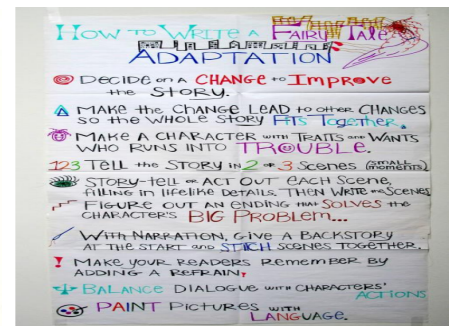 HOW TO WRITE A FAIRY TALE
ADAPTATION
DECIDE ON A CHANGE to IMPROVE
the STORY.
MAKE the CHANGE LEAD to other CHANGES
SO the WHOLE STORY FITS TOGETHER.
MAKE A CHARACTER WITH TRAITS and WANTS
WHO RUNS INTO TROUBLE.
123 TELL the STORY IN 2 or 3 SCENES (SMALL MOMENTS)
STORY-TELL or ACT OUT EACH SCENE,
filling in lifelike Details. THEN WRITE the SCENES
FIGURE OUT AN ENDING that SOLVES the
CHARACTER'S BIG PROBLEM...
WITH NARRATION, GIVE A BACKSTORY
AT THE START and STITCH SCENES TOGETHER.
! MAKE YOUR READERS REMEMBER BY
ADDING A REFRAIN,
BALANCE DIALOGUE WITH CHARACTERS'
ACTIONS
PAINT PICTURES WITH
LANGUAGE.